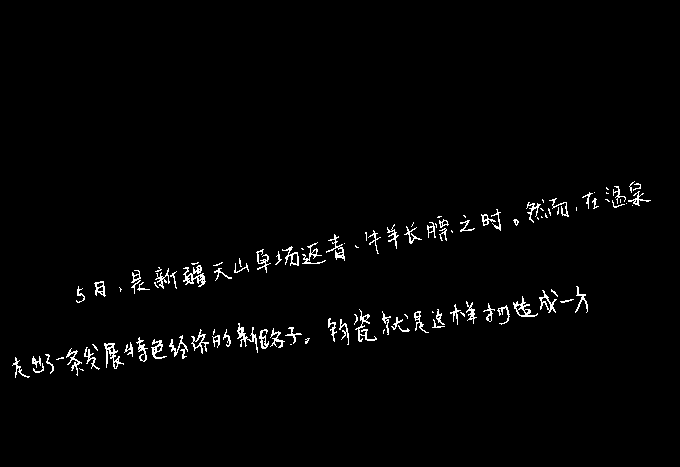 5月，是新疆天山草场返青、牛羊长膘之时。然而，在温泉
走出了一条发展特色经济的新路子。钧瓷就是这样打造成一方